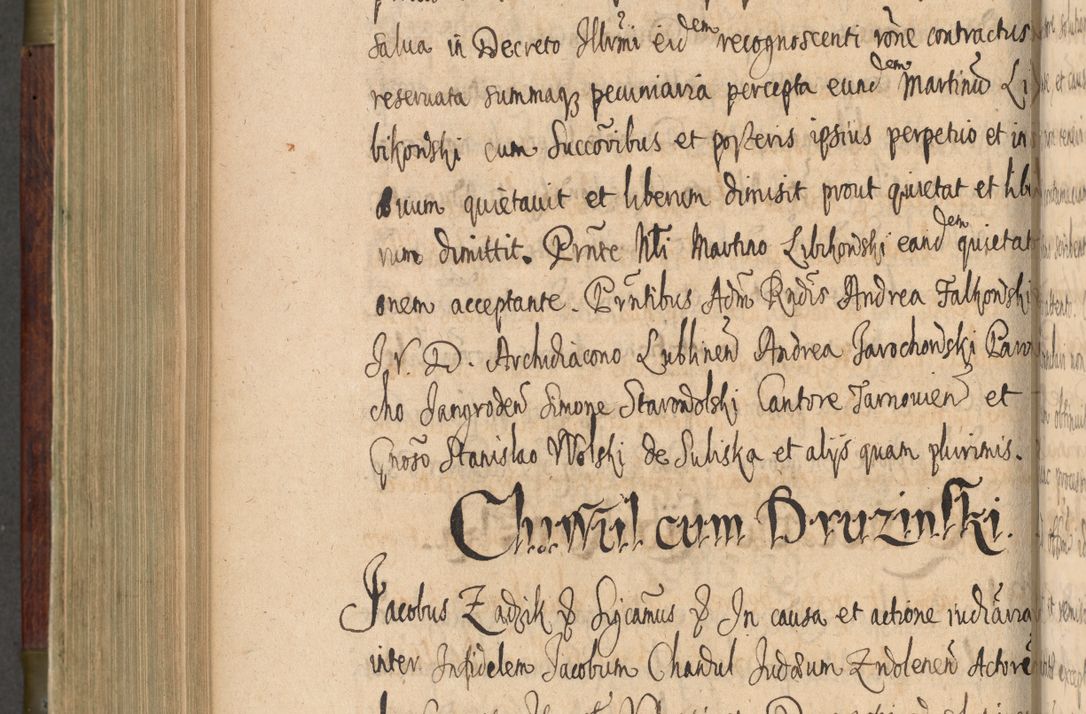 salua in Decreto Illr̃mi eidem recognoscenti rõne contractus
reseruata summaqʒ pecuniaria percepta eundem Martinũ Li
bikowski cum Succõribus et posteris ipsius perpetuo et in
ꝯuum quietauit et liberum dimisit prout quietat et libe
rum dimittit. Prñte Nłi Martino Libikowski eandem quietati
onem acceptante. Prñtibus Adm̃ Rndis Andrea Falkowski
J. V. D. Archidiacono Lublineñ Andrea Jarochowski Paro
cho Jangrodeñ Simone Starowolski Cantore Tarnouieñ et
Gnoso Stanislao Wolski de Suliska et alijs quam plurimis.
cum Druzinski.
Jacobus Zadzik & Sgñcamus & In causa et actione iudiaria
inter Infidelem Jacobum Chawul Judæum Zndoleneñ Actore